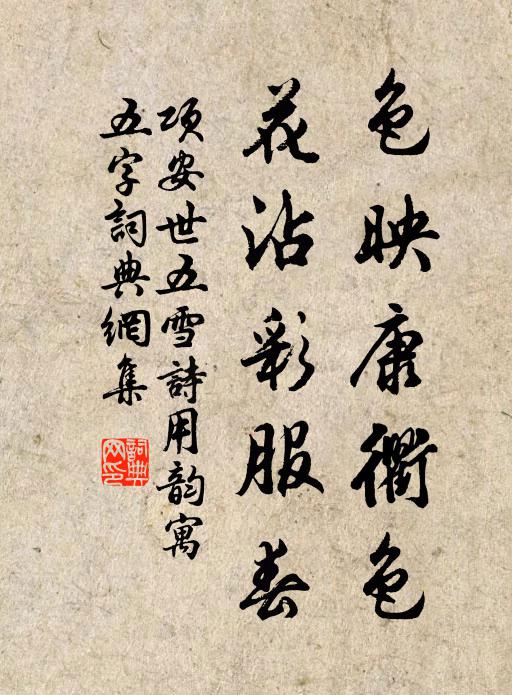 色映康衢色
花沾彩服春
項安世五雪詩用韵寓
五字詞典網集
詞典網印